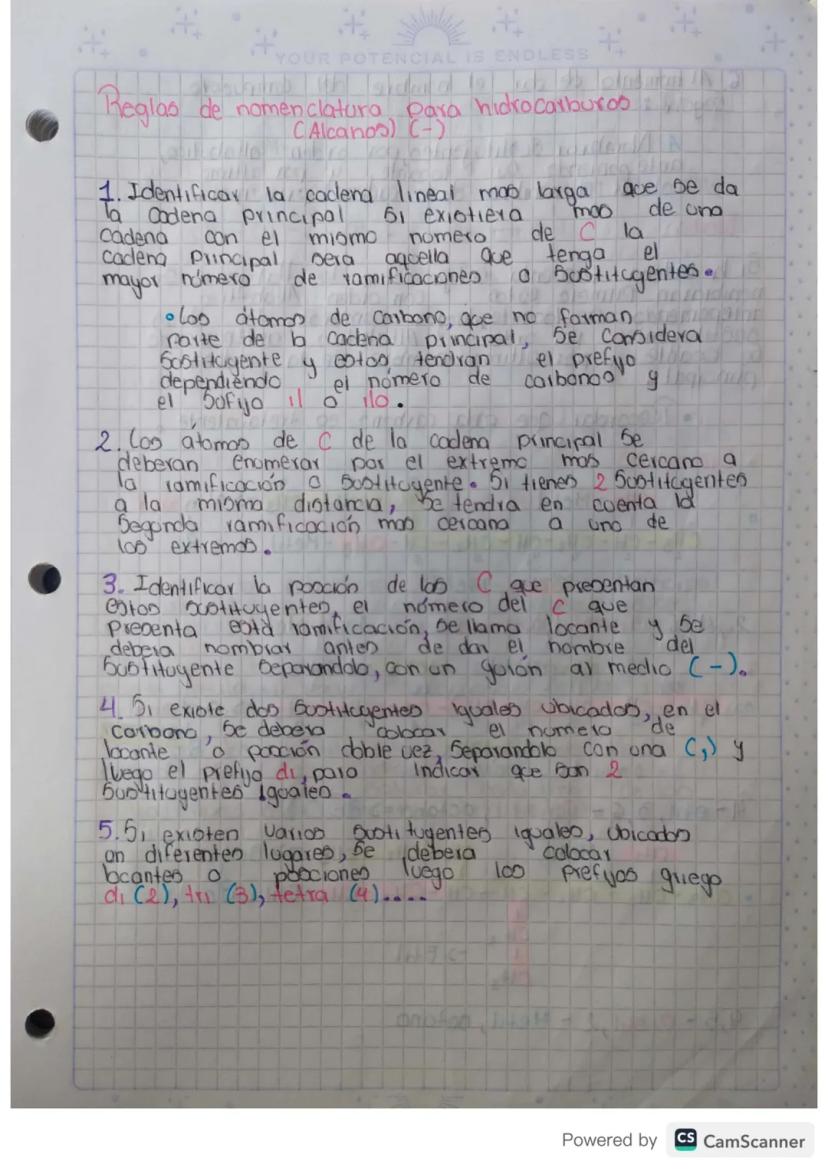 YOUR POTENCIAL IS ENDLESS
Reglas de nomenclatura para hidrocarburos
(Alcanos) (-)
1. Identificar la cadena lineal mas larga que se da
la cadena principal si existiera mas de una
cadena con el mismo numero de C la
cadena principal sera aquella que tenga el
mayor número de ramificaciones o sustituyentes.
• Los átomos de carbono, que no forman
parte de la cadena principal, se considera
sustituyente y estos tendran el prefijo
dependiendo el número de carbonos y
el sufijo il o ilo.
2. Los átomos de C de la cadena principal se
deberan enumerar por el extremo mas cercano a
la ramificación o sustituyente. Si tienes 2 sustituyentes
a la misma distancia, se tendra en cuenta la
segunda ramificación mas cercana a uno de
los extremos.
3. Identificar la posición de los C que presentan
estos sustituyentes, el número del C que
presenta está ramificación, se llama locante y se
debera nombrar antes de dar el nombre del
sustituyente separandolo, con un guión al medio (-).
4. Si existe dos sustituyentes iguales ubicados, en el
carbono, se debera colocar el numero de
locante o posición doble vez, separandolo con una (,) y
luego el prefijo di, para indicar que son 2
sustituyentes iguales.
5. Si existen varios sustituyentes iguales, ubicados
en diferentes lugares, se debera colocar
locantes o posiciones luego los prefijos griego
di (2), tri (3), tetra (4)....
Powered by CS CamScanner